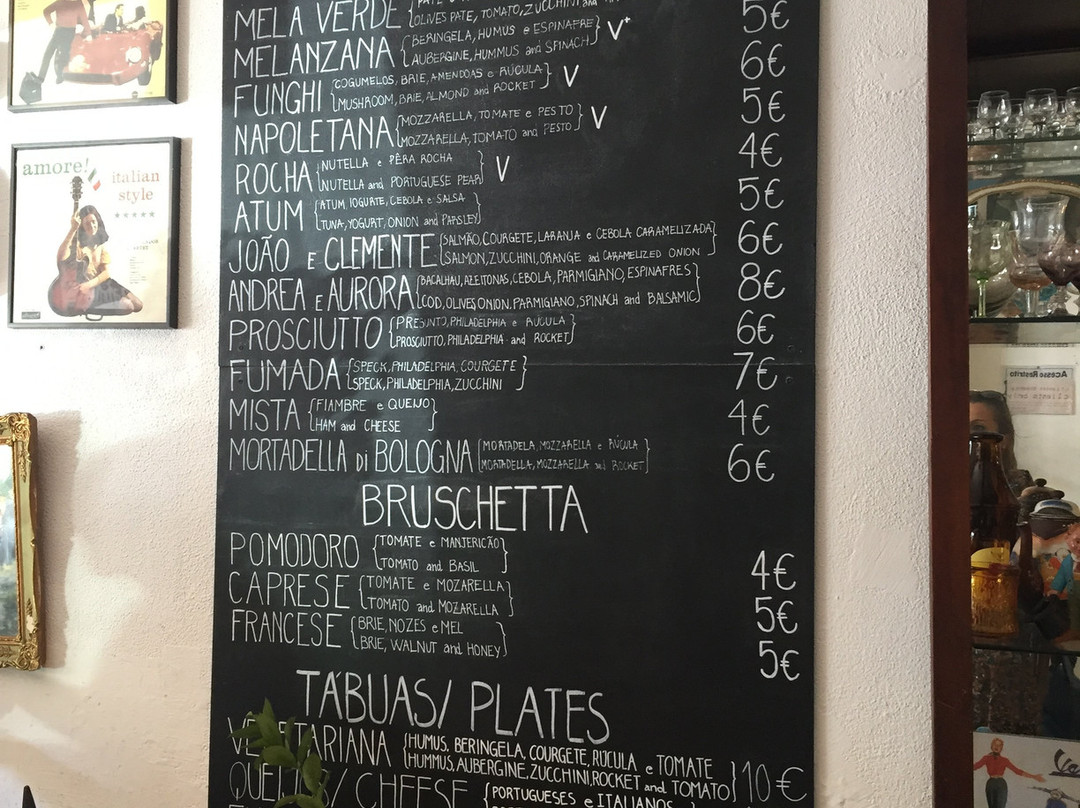 amore!
italian
style
MELA VERDE
OLIVES PATE, TOMATO, ZUCCHINI and
5€
MELANZANA {BERINGELA, HUMUS e ESPINAFRE} V+
AUBERGINE, HUMMUS and SPINACH
6€
FUNGHI {COGUMELOS, BRIE, AMENDOAS e RÚCULA} V
MUSHROOM, BRIE, ALMOND and ROCKET
5€
NAPOLETANA {MOZZARELLA, TOMATE e PESTO} V
MOZZARELLA, TOMATO and PESTO
4€
ROCHA {NUTELLA e PÊRA ROCHA} V
NUTELLA and PORTUGUESE PEAR
5€
ATUM {ATUM, IOGURTE, CEBOLA e SALSA}
TUNA, YOGURT, ONION and PARSLEY
6€
JOÃO E CLEMENTE {SALMÃO, COURGETE, LARANJA e CEBOLA CARAMELIZADA}
SALMON, ZUCCHINI, ORANGE and CARAMELIZED ONION
8€
ANDREA E AURORA {BACALHAU, AZEITONAS, CEBOLA, PARMIGIANO, ESPINAFRES}
COD, OLIVES, ONION, PARMIGIANO, SPINACH and BALSAMIC
6€
PROSCIUTTO {PRESUNTO, PHILADELPHIA e RÚCULA}
PROSCIUTTO, PHILADELPHIA and ROCKET
7€
FUMADA {SPECK, PHILADELPHIA, COURGETE}
SPECK, PHILADELPHIA, ZUCCHINI
4€
MISTA {FIAMBRE e QUEIJO}
HAM and CHEESE
MORTADELLA di BOLOGNA {MORTADELA, MOZZARELLA e RÚCULA}
MORTADELLA, MOZZARELLA and ROCKET
6€
BRUSCHETTA
POMODORO {TOMATE e MANJERICÃO}
TOMATO and BASIL
4€
CAPRESE {TOMATE e MOZARELLA}
TOMATO and MOZARELLA
5€
FRANCESE {BRIE, NOZES e MEL}
BRIE, WALNUT and HONEY
5€
TÁBUAS/ PLATES
VEGETARIANA {HUMUS, BERINGELA, COURGETE, RÚCULA e TOMATE}
HUMMUS, AUBERGINE, ZUCCHINI, ROCKET and TOMATO
10€
QUEIJOS/ CHEESE {PORTUGUESES e ITALIANOS
Acesso Restrito